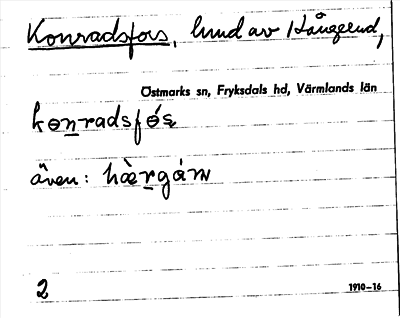 Konradsfors, hmd av Hångerud,
Östmarks sn, Fryksdals hd, Värmlands län
konradsfós
även: hærgáṛṇ
2
1910–16